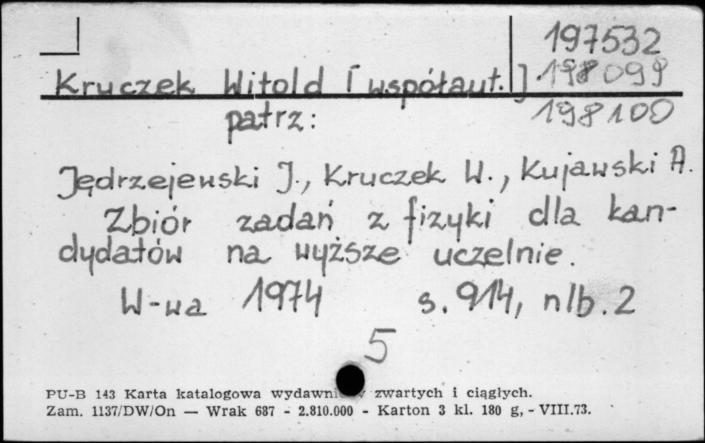 197532
Kruczek Witold [współaut.] 198099
patrz: 198100
Jędrzejewski J., Kruczek W., Kujawski A.
Zbiór zadań z fizyki dla kan-
dydatów na wyższe uczelnie.
W-wa 1974 s. 914, nlb. 2
5
PU-B 143 Karta katalogowa zwartych i ciągłych.
Zam. 1137/DW/On — Wrak 687 - 2.810.000 - Karton 3 kl. 180 g, - VIII.73.